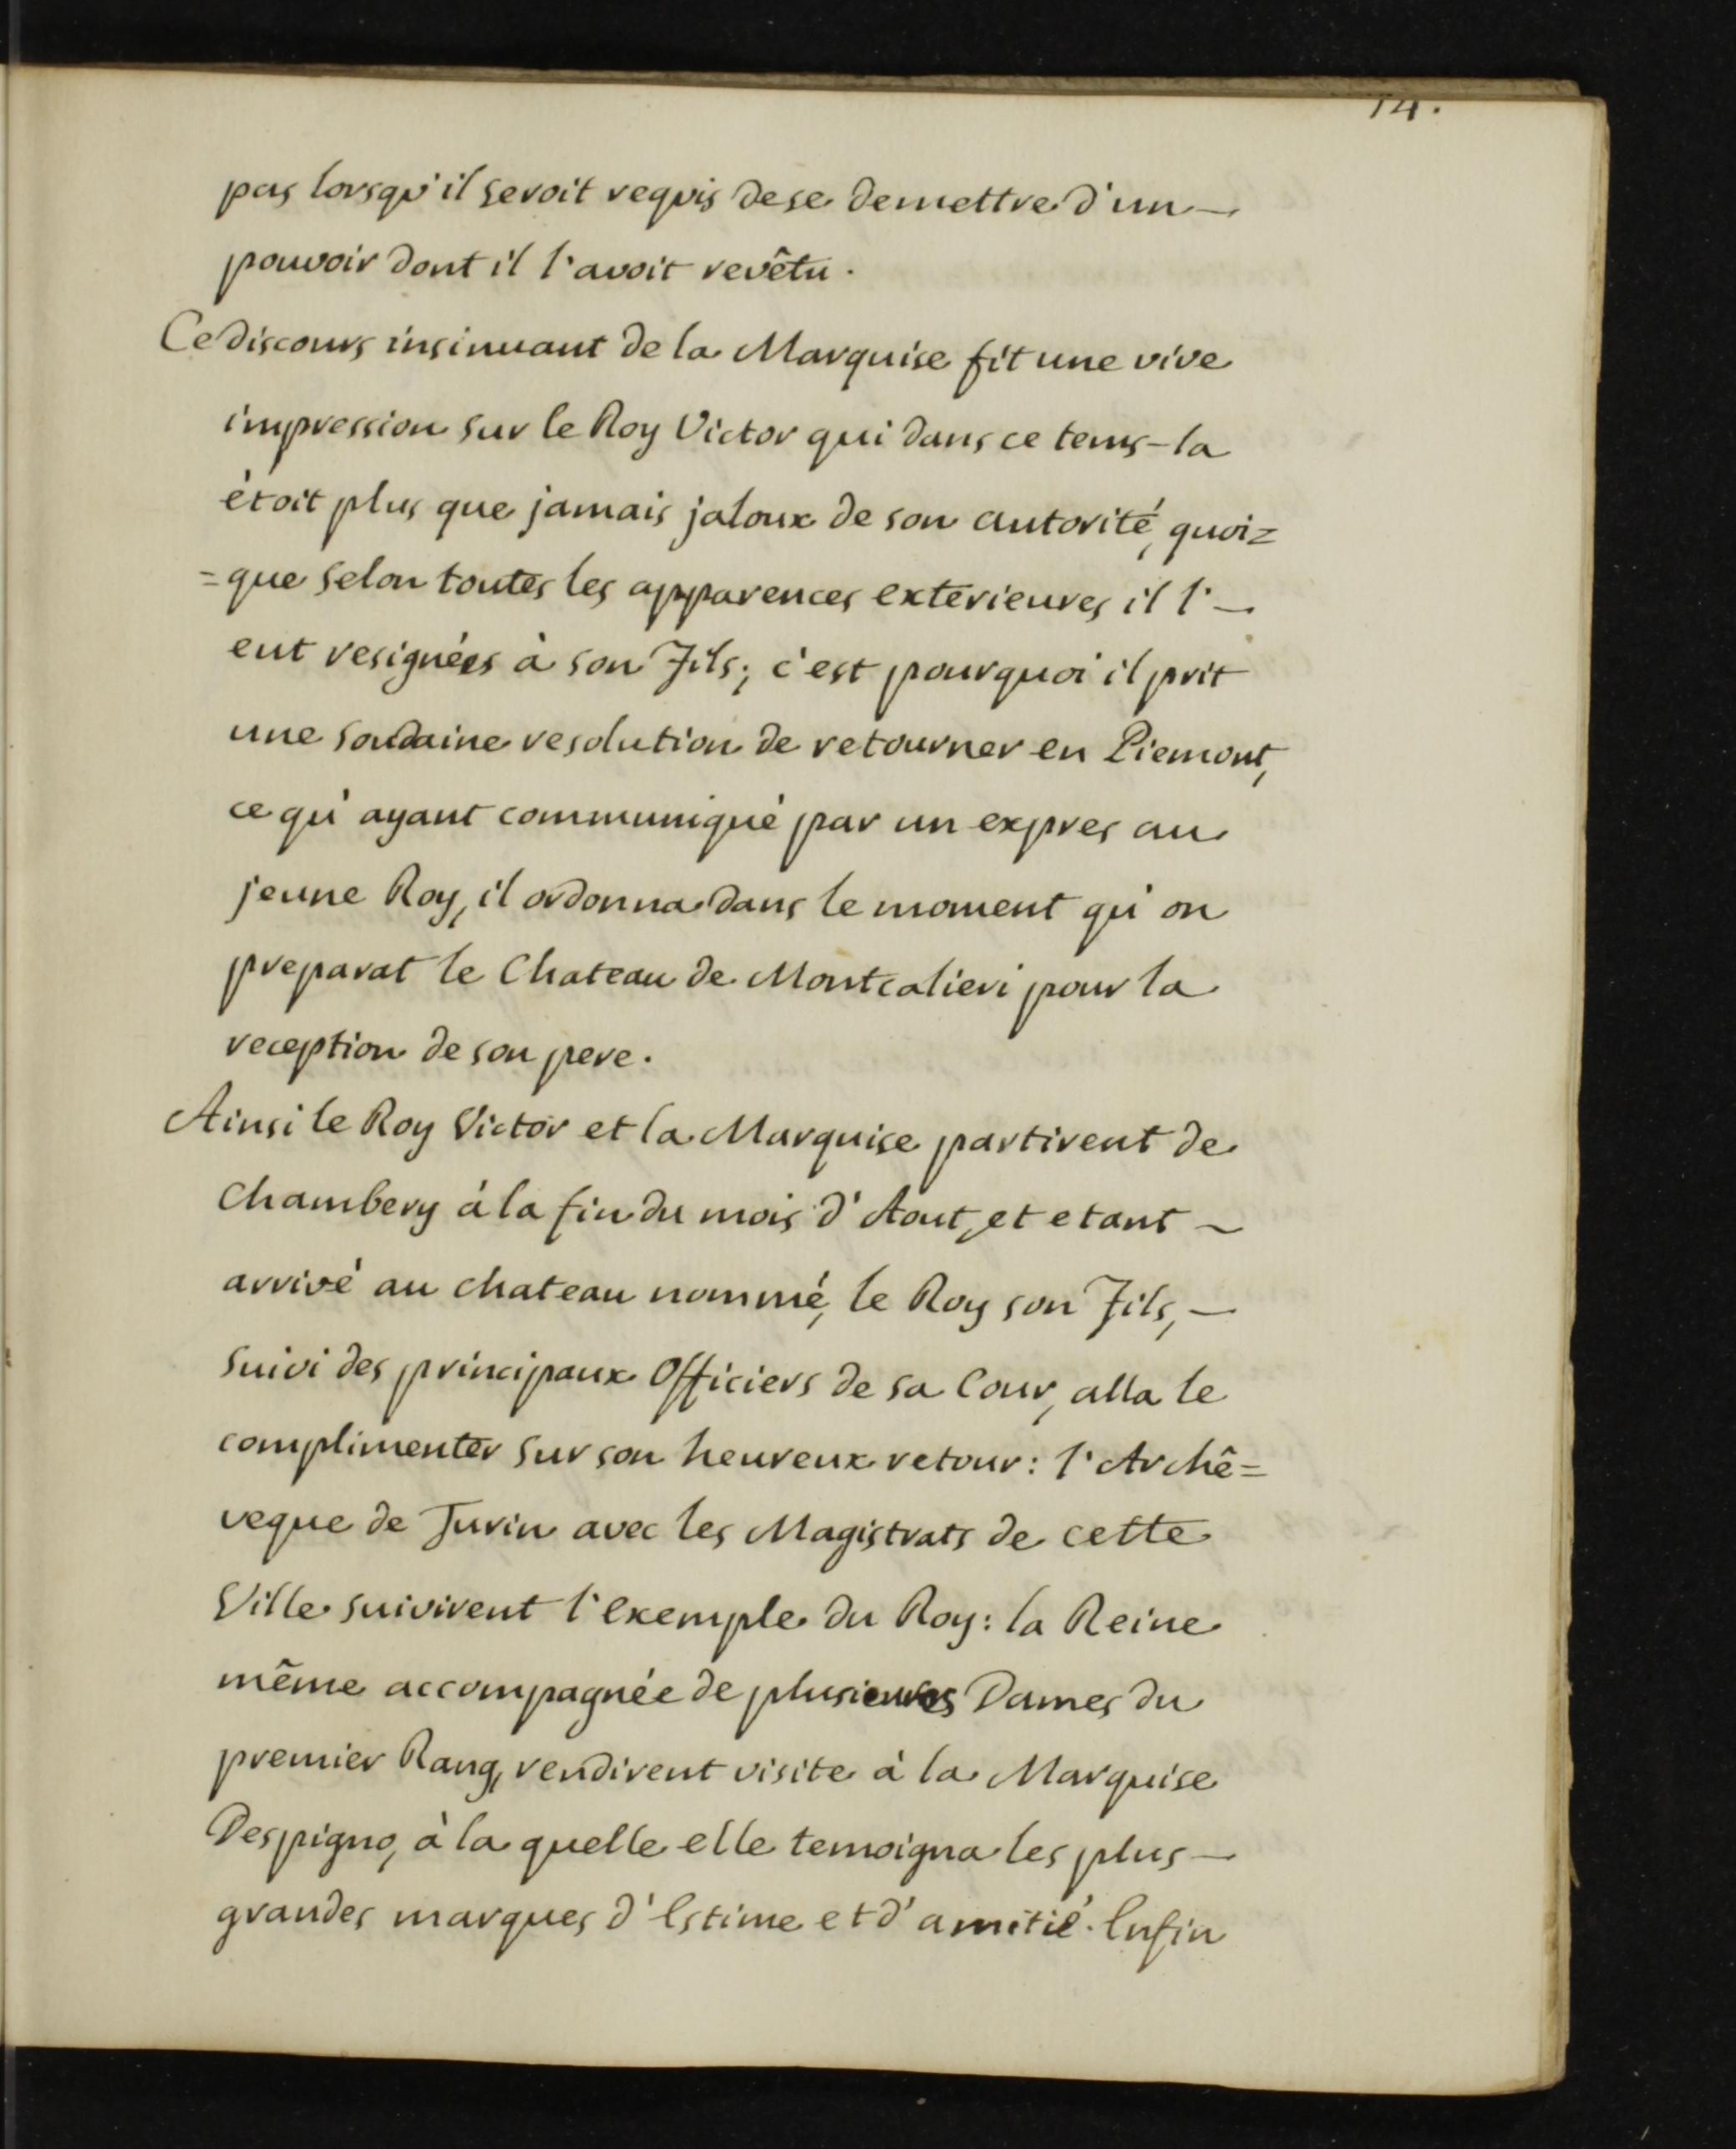 14.
pas lorsqu'il seroit requis de se demettre d'un —
pouvoir dont il l'avoit revêtu.
Ce discours insinuant de la Marquise fit une vive
impression sur le Roy Victor qui dans ce tems-la
étoit plus que jamais jaloux de son autorité, quoi=
=que selon toutes les apparences exterieures il l' —
eut resignées à son Fils; c'est pourquoi il prit
une soudaine resolution de retourner en Piemont,
ce qu'ayant communiqué par un expres au
jeune Roy, il ordonna dans le moment qu'on
preparat le Chateau de Montcalieri pour la
reception de son pere.
Ainsi le Roy Victor et la Marquise partirent de
Chambery à la fin du mois d'Aout, et etant ~
arrivé au chateau nommé, le Roy son Fils, —
suivi des principaux Officiers de sa Cour, alla le
complimenter sur son heureux retour: l'Archê=
veque de Turin avec les Magistrats de cette
Ville suivirent l'exemple du Roy: la Reine
même accompagnée de plusieurs Dames du
premier Rang, rendirent visite à la Marquise
Despigno, à la quelle elle temoigna les plus —
grandes marques d'Estime et d'amitié. Enfin